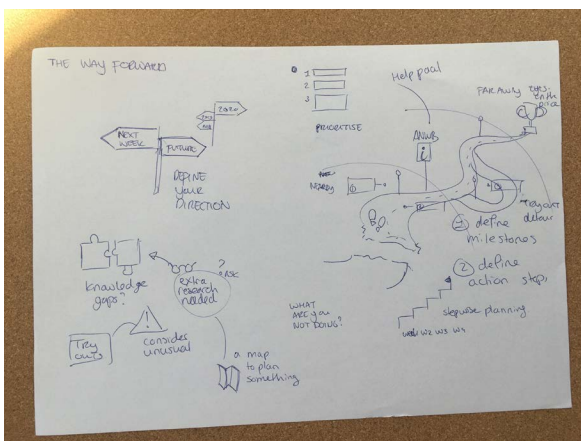 THE WAY FORWARD
2020
NEXT
WEEK
FUTURE
DEFINE
your
DIRECTION
1
2
3
PRIORITISE
Help pool
FAR AWAY
EYES
ON THE
PRICE
ANWB
i
NEARBY
Try out
detour
1 define
milestones
2 define
action steps
stepwise planning
W2 W3 W4
WHAT
ARE you
NOT DOING?
knowledge
gaps?
?
RISK
extra
research
needed
Try
out
consider
unusual
a map
to plan
something